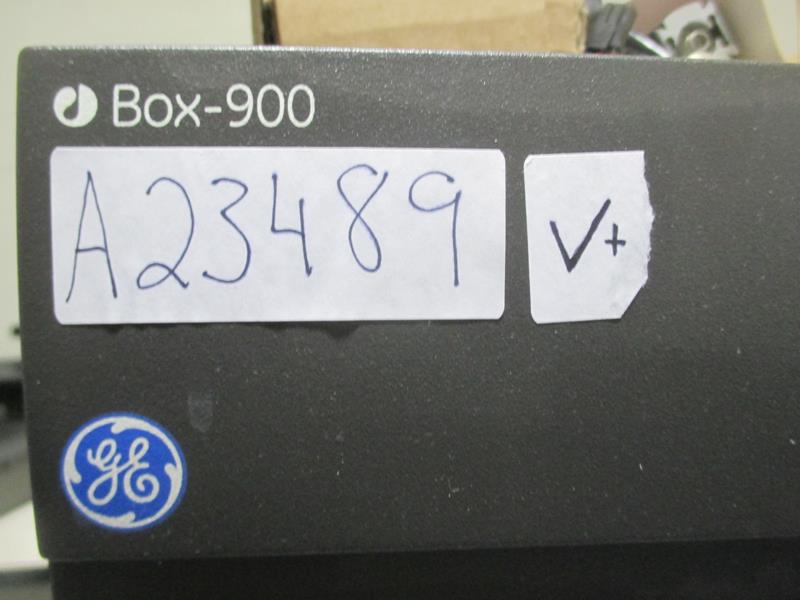 Box-900
A23489
V+
GE